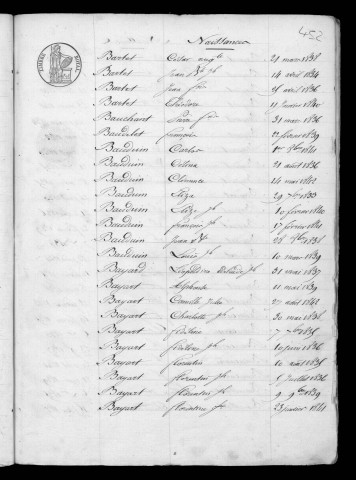 452
Naissances
Bartel César aug.te 21 mars 1835
Bartel Jean B.te 14 avril 1834
Bartel Jean 25 avril 1836
Bartel Théodore 11 janvier 1840
Bauchart Pierre 31 mars 1836
Baudelet françois 12 février 1839
Bauduin Carlos 1841
Bauduin Célina 21 août 1836
Bauduin Clémence 24 mai 1842
Bauduin Eliza 29 1833
Bauduin Elize 10 février 1840
Bauduin françois 17 février 1841
Bauduin Jean B.te 28 1835
Bauduin Louis 10 mars 1839
Bayard Léopoldine 31 mars 1837
Bayart Alphonse 11 mai 1839
Bayart Camille Jules 22 août 1842
Bayart Charlotte 30 mai 1836
Bayart 7 1835
Bayart 10 1836
Bayart florentin 10 août 1835
Bayart florentin 5 juillet 1836
Bayart florentin 9 9.bre 1839
Bayart florentin 23 janvier 1841